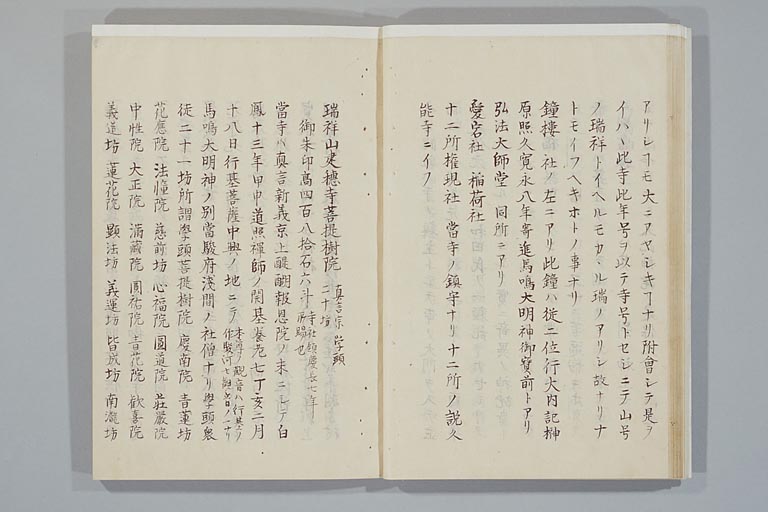 アリシ事モ大ニアヤシキ丁ナリ附會シテ是ヲ
イハヽ此寺此年号ヲ以テ寺号トセシニテ山号
ノ瑞祥トイヘルモカヽル瑞ノアリシ故ナリナ
トモイフヘキホトノ事ナリ
鐘樓 社ノ左ニアリ此鐘ハ従二位行大内記榊
原照久寛永八年寄進馬鳴大明神御寳前トアリ
弘法大師堂 同所ニアリ
愛宕社 稲荷社
十二所権現社 當寺ノ鎮守ナリ十二所ノ説久
能寺ニイフ
瑞祥山建穂寺菩提樹院 二十坊 真言宗 学頭
御朱印高四百八拾石六斗 寺社領慶長七年 所賜也
當寺ハ真言新義京上醍醐報恩院ノ末ニシテ白
鳳十三年甲申道照禅師ノ開基養老七丁亥二月
十八日行基菩薩中興ノ地ニテ 本尊 観音ハ行基ノ作駿河七観音ノ一ナリ
馬鳴大明神ノ別當駿府浅間ノ社僧ナリ學頭衆
徒二十一坊所謂學頭菩提樹院 慶南院 青蓮坊
花應院 法憧院 慈前坊 心福院 圓道院 荘厳院
中性院 大正院 満蔵院 圓祐院 青花院 歓喜院
義道坊 蓮花院 顕法坊 義蓮坊 皆成坊 南瀧坊